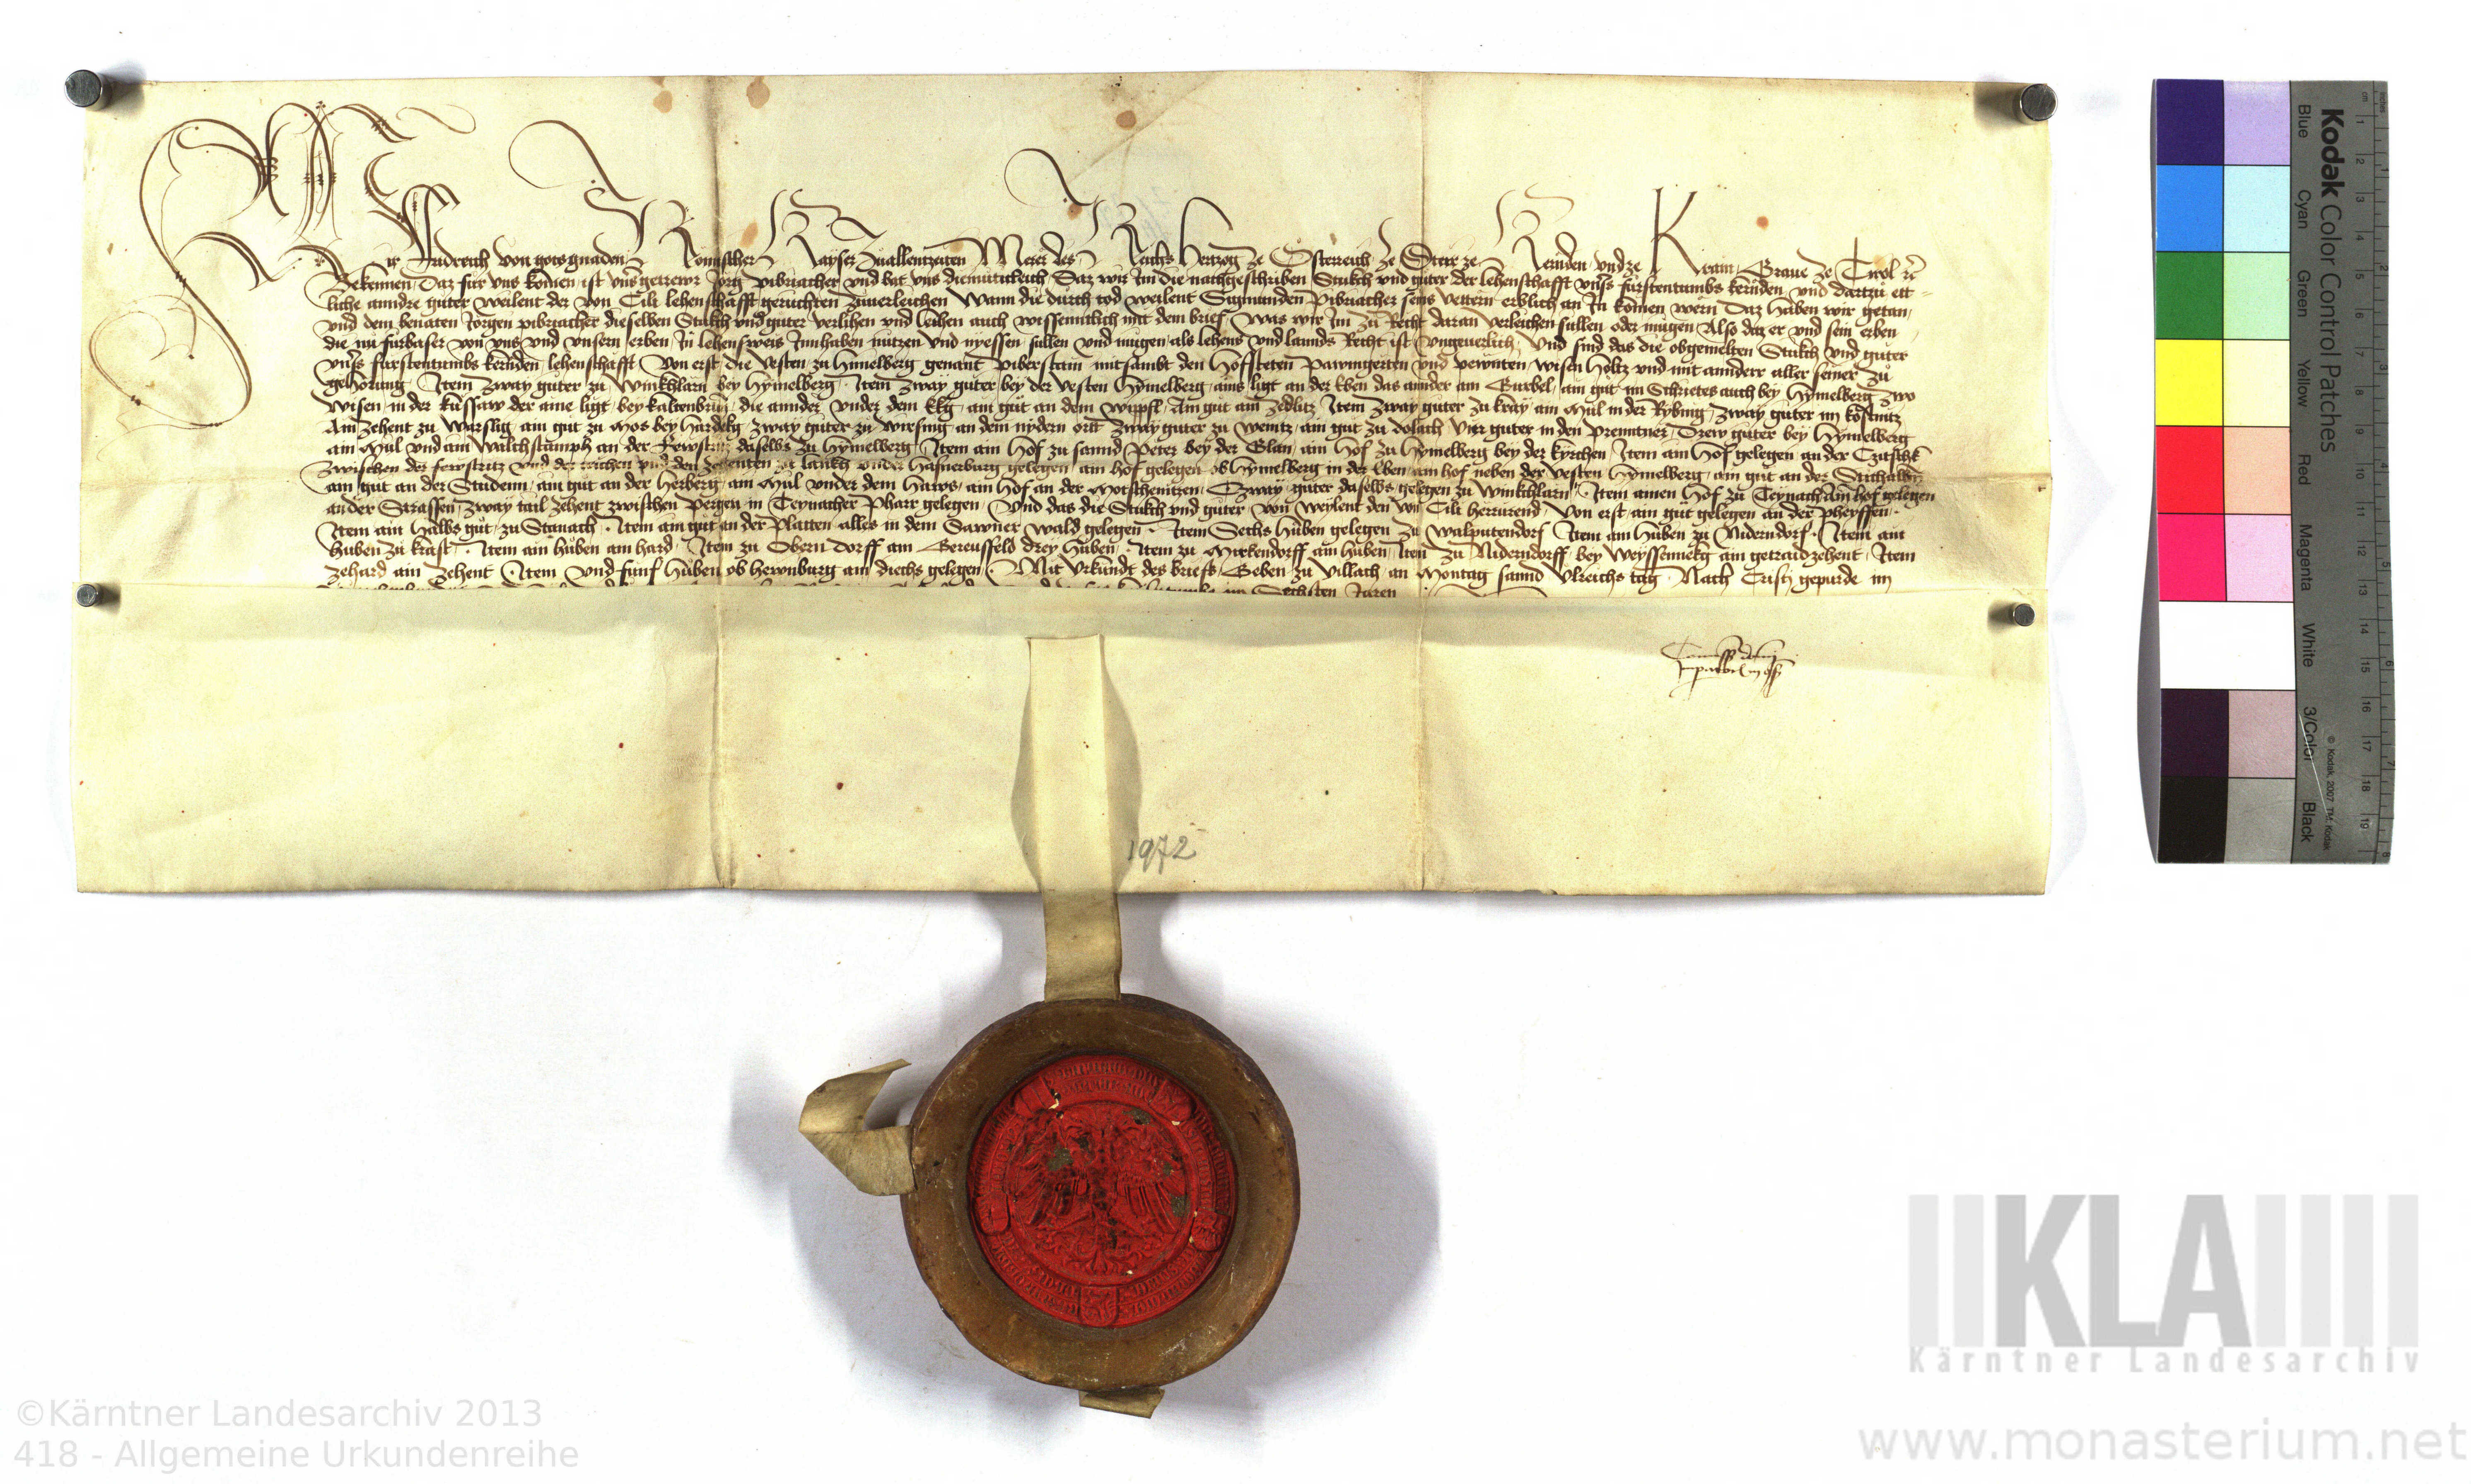 Wir Fridreich von gots gnaden Romischer Kayser zuallentzeiten Merer des Reichs Hertzog ze Österreich ze Steir ze Kernden vnd ze Krain Graue ze Tirol
Bekennen Daz für vns komen ist vnser getrewr Jörg pibriacher vnd bat vns diemuticleich Daz wir Im die nachgeschriben Stukch vnd güter der lehenschafft vnsers fürstentumbs kernden vnd dartzü ett-
liche anndre güter weilent der von Cili lehenschafft geruchten zuuerleichen Wann die durch tod weilent Sigmunden Pibriacher seins vettern erblich an In komen wern Daz haben wir getan
vnd dem benanten Jörgen pibriacher dieselben Stukch vnd güter verlihen vnd leihen auch wissenntlich mit dem brief Was wir Im zu Recht daran verleichen sullen oder mugen Also daz er vnd sein erben
die nu fürbaser von vns vnd vnsern erben In lehensweis Innhaben nutzen vnd nyessen sullen vnd mugen als lehens vnd lannds Recht ist vngeuerlich Vnd sind das die obgemelten Stukch vnd güter
vnsers fürstentumbs kernden lehenschafft Von erst die Vesten zu himelberg genant piberstain mitsambt den hofsteten Pawmgerten vnd pewnten wisen holtz vnd mit anndere aller seiner zü
gehorung Item zway güter zu Winkhlarn bey hymelberg Item zway güter bey der vesten hymelberg ains ligt an der Eben das annder am Gurbel ain güt im Schrietes auch bey hymelberg zwo
wisen in der kussaw der aine ligt bey kaltenbrun die annder vnder dem Ekg ain güt an dem wippsl Ain güt am zedlitz Item zway güter zu kray am Mul in der Rybnig zway güter im kostnitz
Ain zehent zu Warslig ain gut zu Mos bey hardekg zway güter zu wirsing an dem nydern ortt zway güter zu wenitz ain gut zu dolach Vier güter in den premitner Drew güter bey hymelberg
ain Mul vnd ain walchstamph an der daselbs zu hymelberg Item ain hof zu sannd Peter bey der Glan ain hof zu hymelberg bey der kyrchen Item ain hof gelegen an der
zwischen der fewstritz vnd der vnd den zehenten vnder hafnerburg gelegen ain hof gelegen ob hymelberg in der Eben ain hof neben der vesten hymelberg ain güt an der
ain güt an der Studenn ain güt an der herberg ain Mul vnder dem haws ain hof an der Motschenitzen Zway güter daselbs gelegen zu winkchlarn Item ainen hof zu Teynach Ain hof gelegen
an der Strassen zway tail zehent zwischen pergen in Teynacher Pharr gelegen Vnd das die Stukch vnd güter von weylent den von Cili herrurend Von erst ain gut gelegen an der pheyssen
Item ain halbs güt zu Stanach Item ain güt an der Platten alles in dem Sawner wald gelegen Item Sechs hüben gelegen zu walputendorf Item ain hüben zu Niderndorf Item ain
huben zu krast Item ain huben am hard Item zu Obern dorff am Gereutfeld drey huben Item zu Mirkendorff ain huben Item zu Niderndorff bey Weyssennekg ain getraidzehent Item
zehard ain zehent Item vnd funf huben ob hewnburg am diechs gelegen Mit vrkundt des briefs Geben zu Villach an Montag sannd Vlreichs tag Nach Cristi gepurde im
im Sechsten Jaren
1972
Kodak Color Control Patches
Blue Cyan Green Yellow Red Magenta White 3/Color Black
© Kodak, 2007 TM: Kodak
KLA
Kärntner Landesarchiv
©Kärntner Landesarchiv 2013
418 - Allgemeine Urkundenreihe
www.monasterium.net